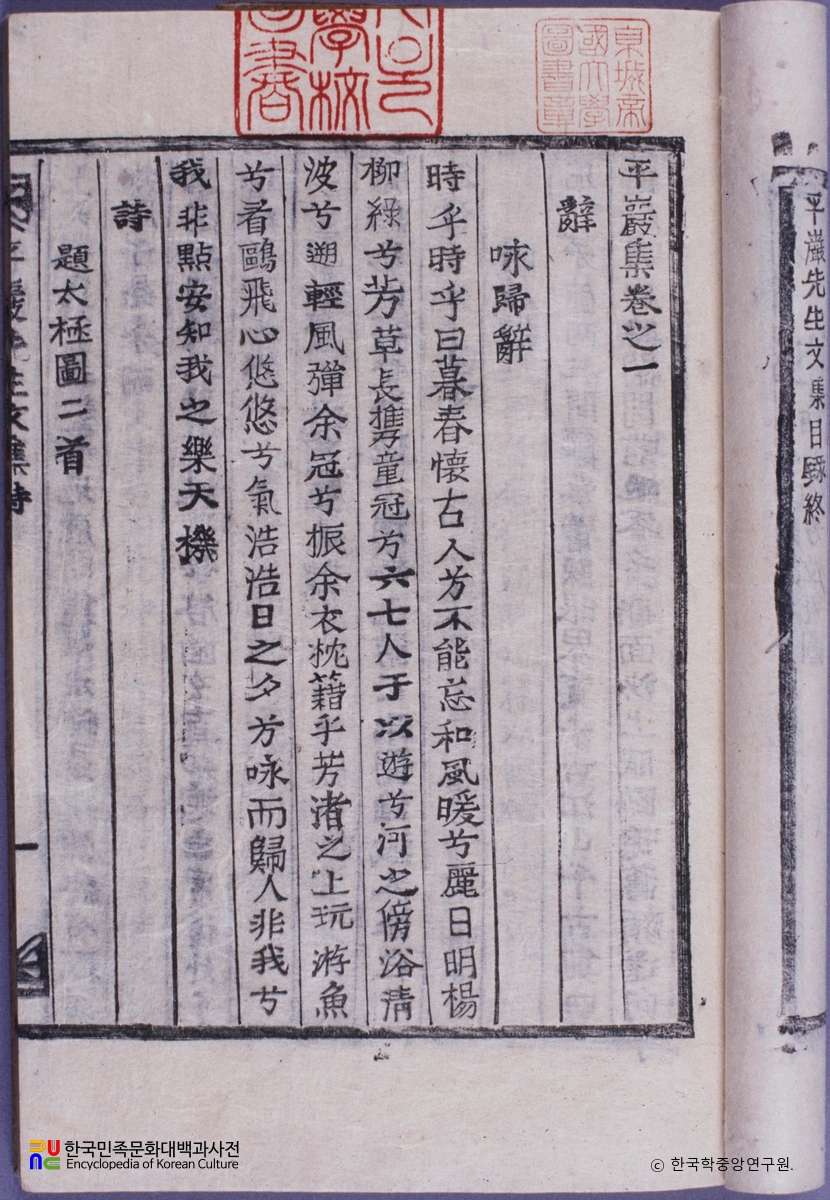 平巖先生文集目錄終
平巖集卷之一
辭
咏歸辭
時乎時乎曰暮春懷古人兮不能忘和風暖兮麗日明楊
柳綠兮芳草長携童冠兮六七人于以遊兮河之傍浴淸
波兮遡輕風彈余冠兮振余衣枕藉乎芳渚之上玩游魚
兮看鷗飛心悠悠兮氣浩浩日之夕兮咏而歸人非我兮
我非點安知我之樂天機
詩
題太極圖二首
平巖先生文集詩
一
東城帝
國大學
圖書章
한국민족문화대백과사전
Encyclopedia of Korean Culture
© 한국학중앙연구원.